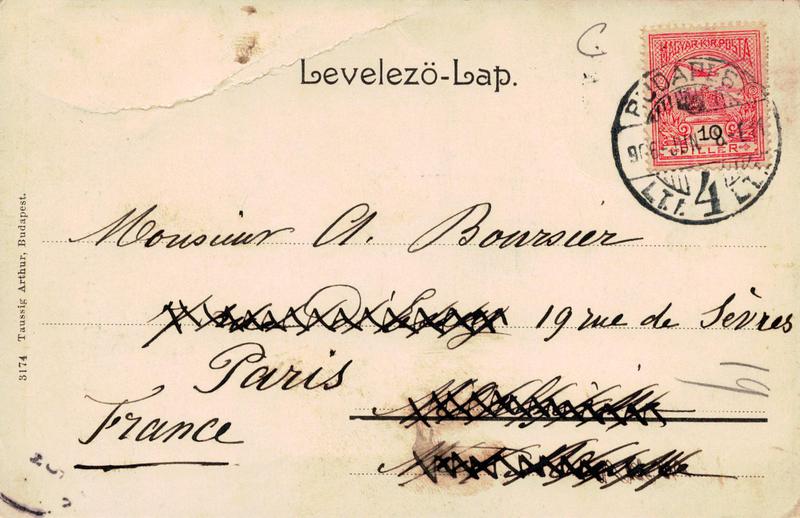 Levelező-Lap.
MAGYAR·KIR·POSTA
10
FILLÉR
BUDAPEST
906 JUN
4
3174 Taussig Arthur, Budapest.
Monsieur A. Boursier
19 rue de Sèvres
Paris
France
19